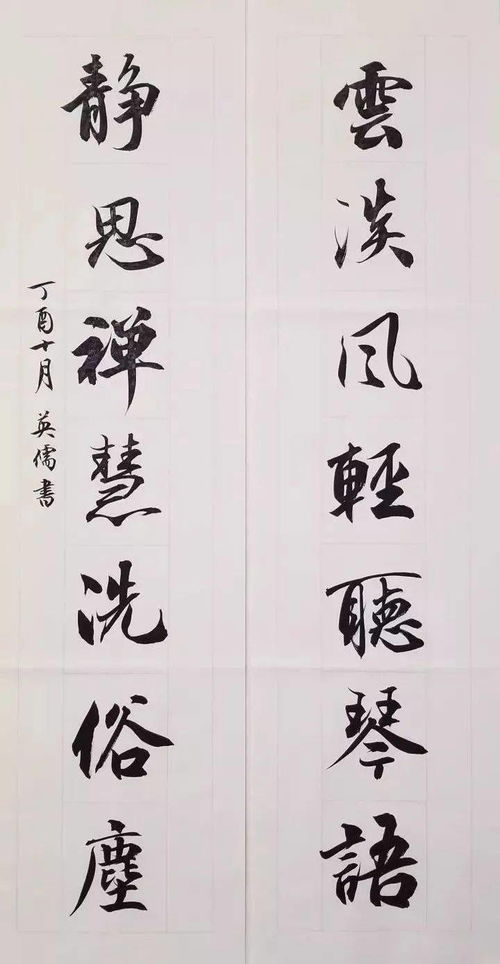 雲淡风輕聽琴語
静思禅慧洗俗塵
丁酉十月英儒書